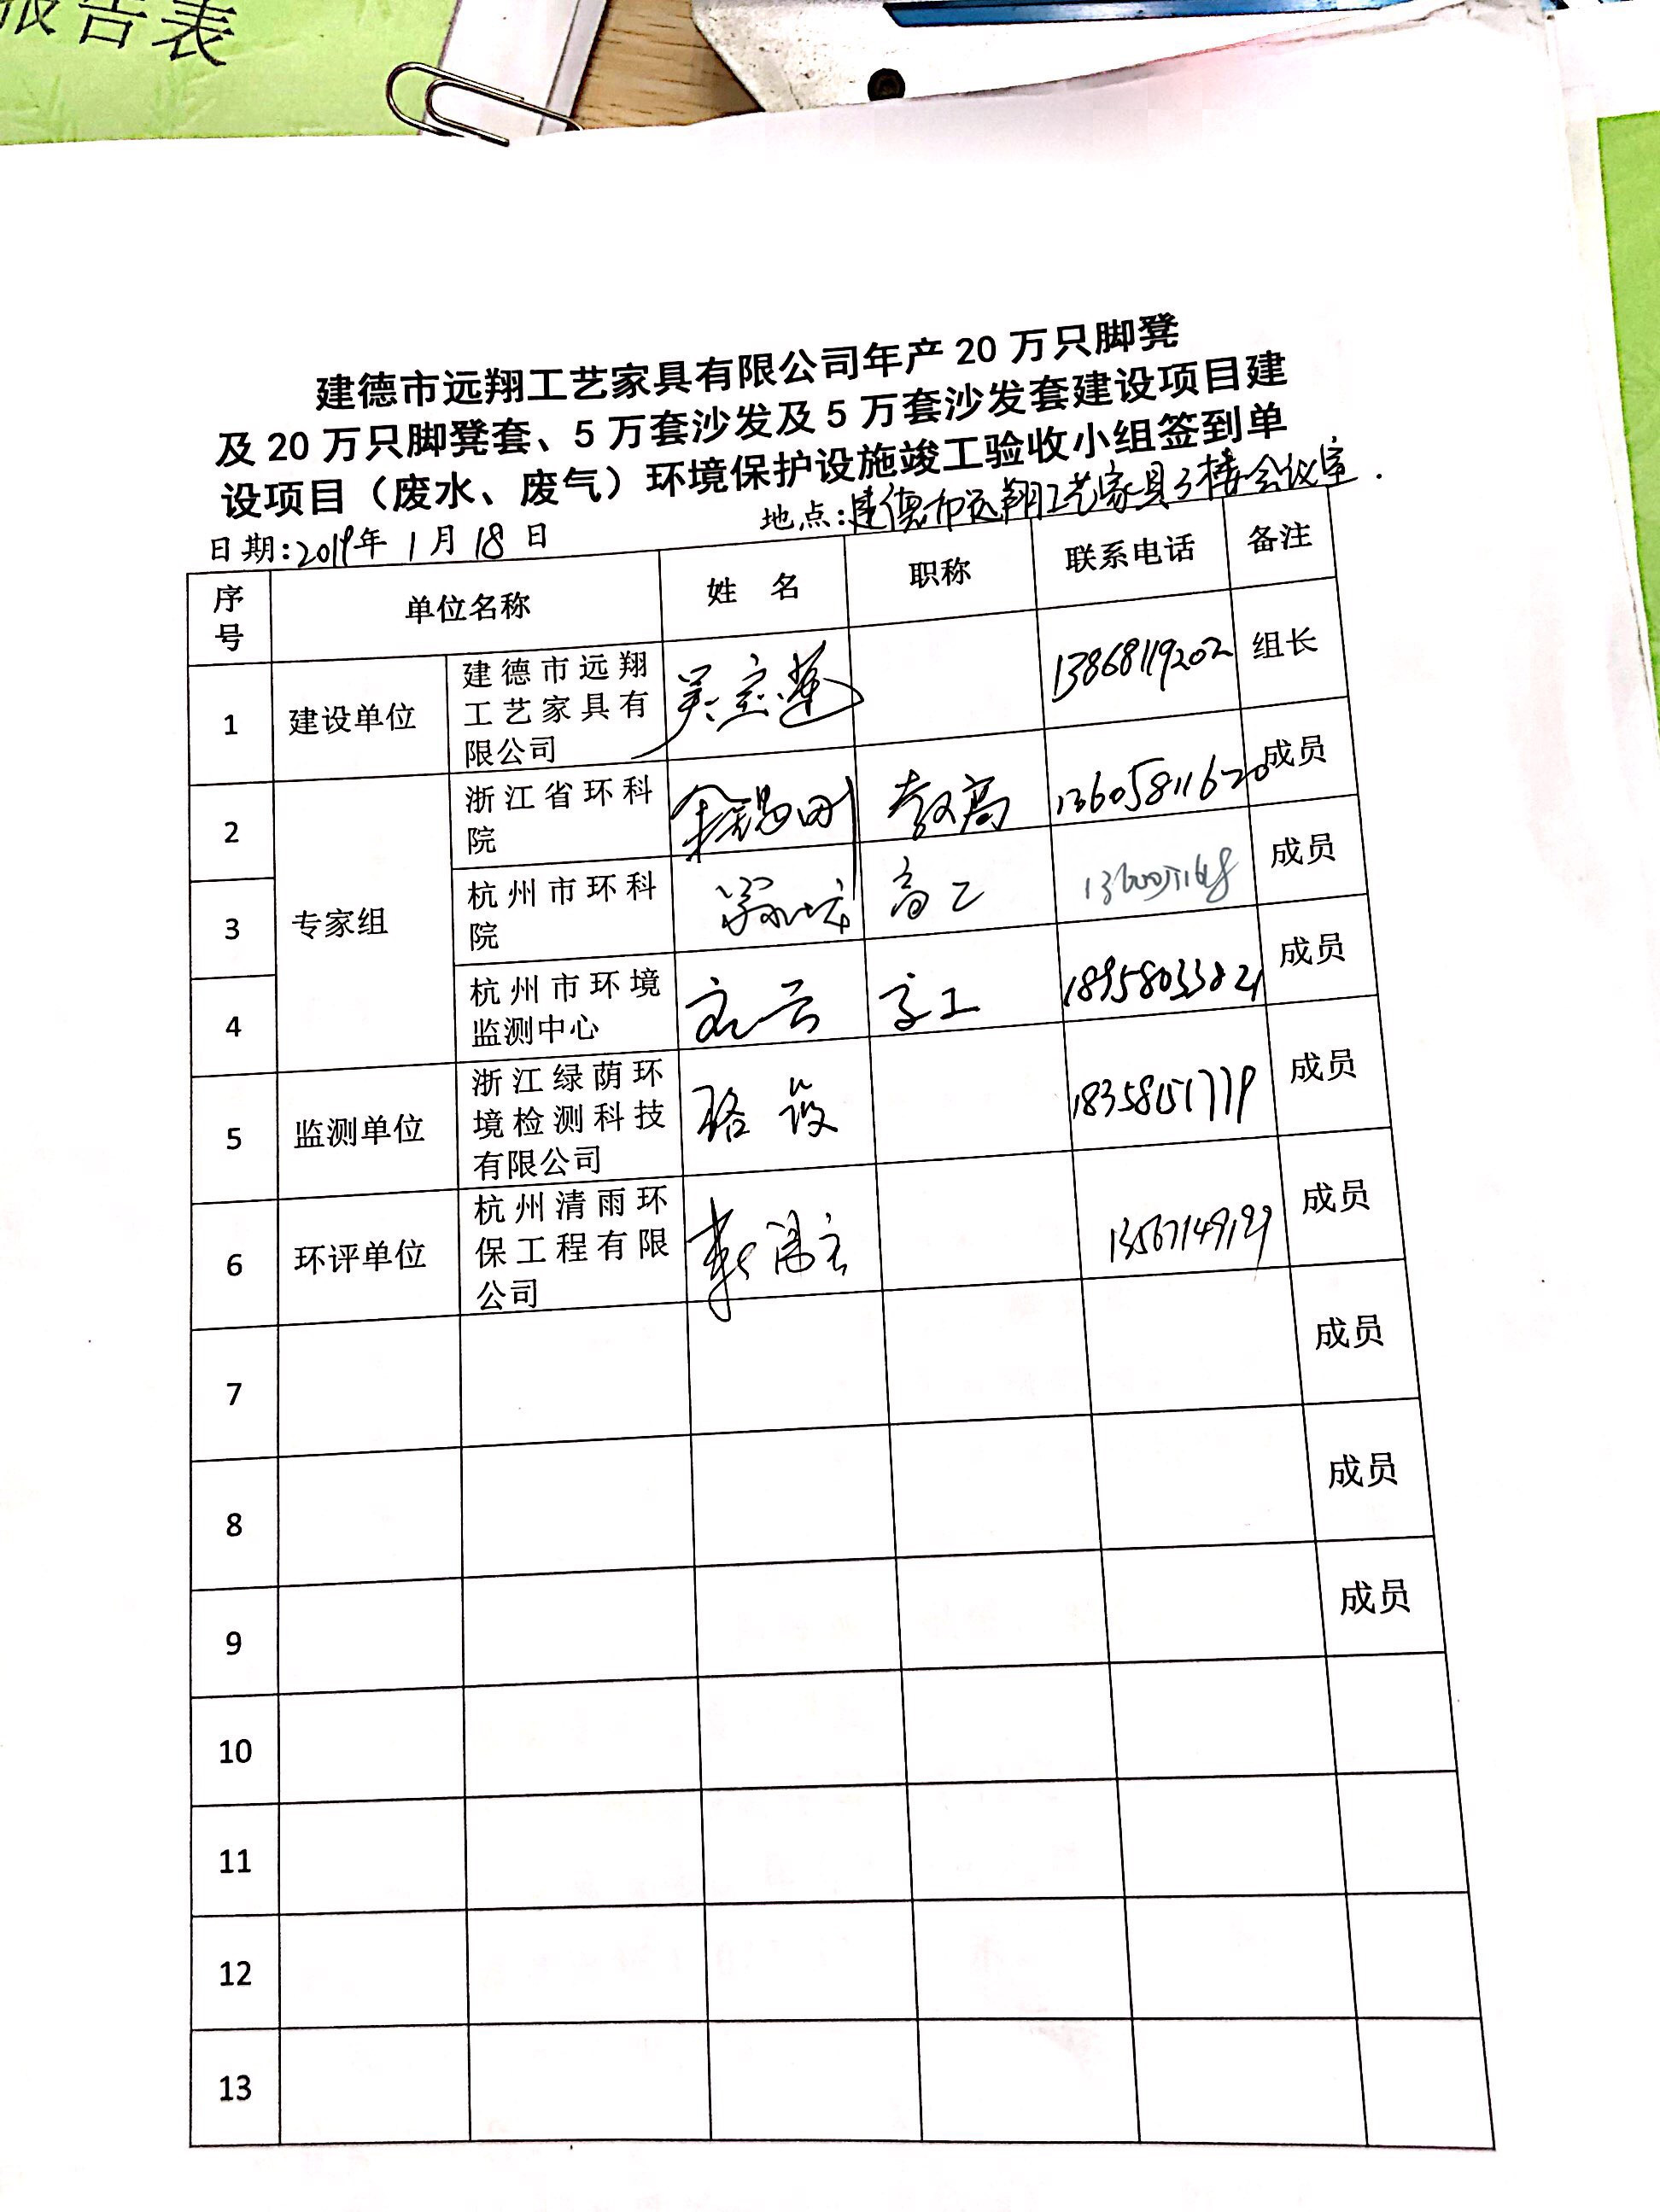 报告表
建德市远翔工艺家具有限公司年产 20 万只脚凳
及 20 万只脚凳套、5 万套沙发及 5 万套沙发套建设项目建
设项目（废水、废气）环境保护设施竣工验收小组签到单
日期:2019年 1 月 18 日
地点:建德市远翔工艺家具3楼会议室.
序号 单位名称 姓 名 职称 联系电话 备注
1 建设单位
建德市远翔
工艺家具有
限公司
吴宝莲 13868119202 组长
2
浙江省环科
院
教高 13605811620 成员
专家组
3
杭州市环科
院
高工 成员
4
杭州市环境
监测中心
高工 18958033821 成员
5 监测单位
浙江绿荫环
境检测科技
有限公司
骆设 18358151779 成员
6 环评单位
杭州清雨环
保工程有限
公司
13567149129 成员
7 成员
8 成员
9 成员
10
11
12
13